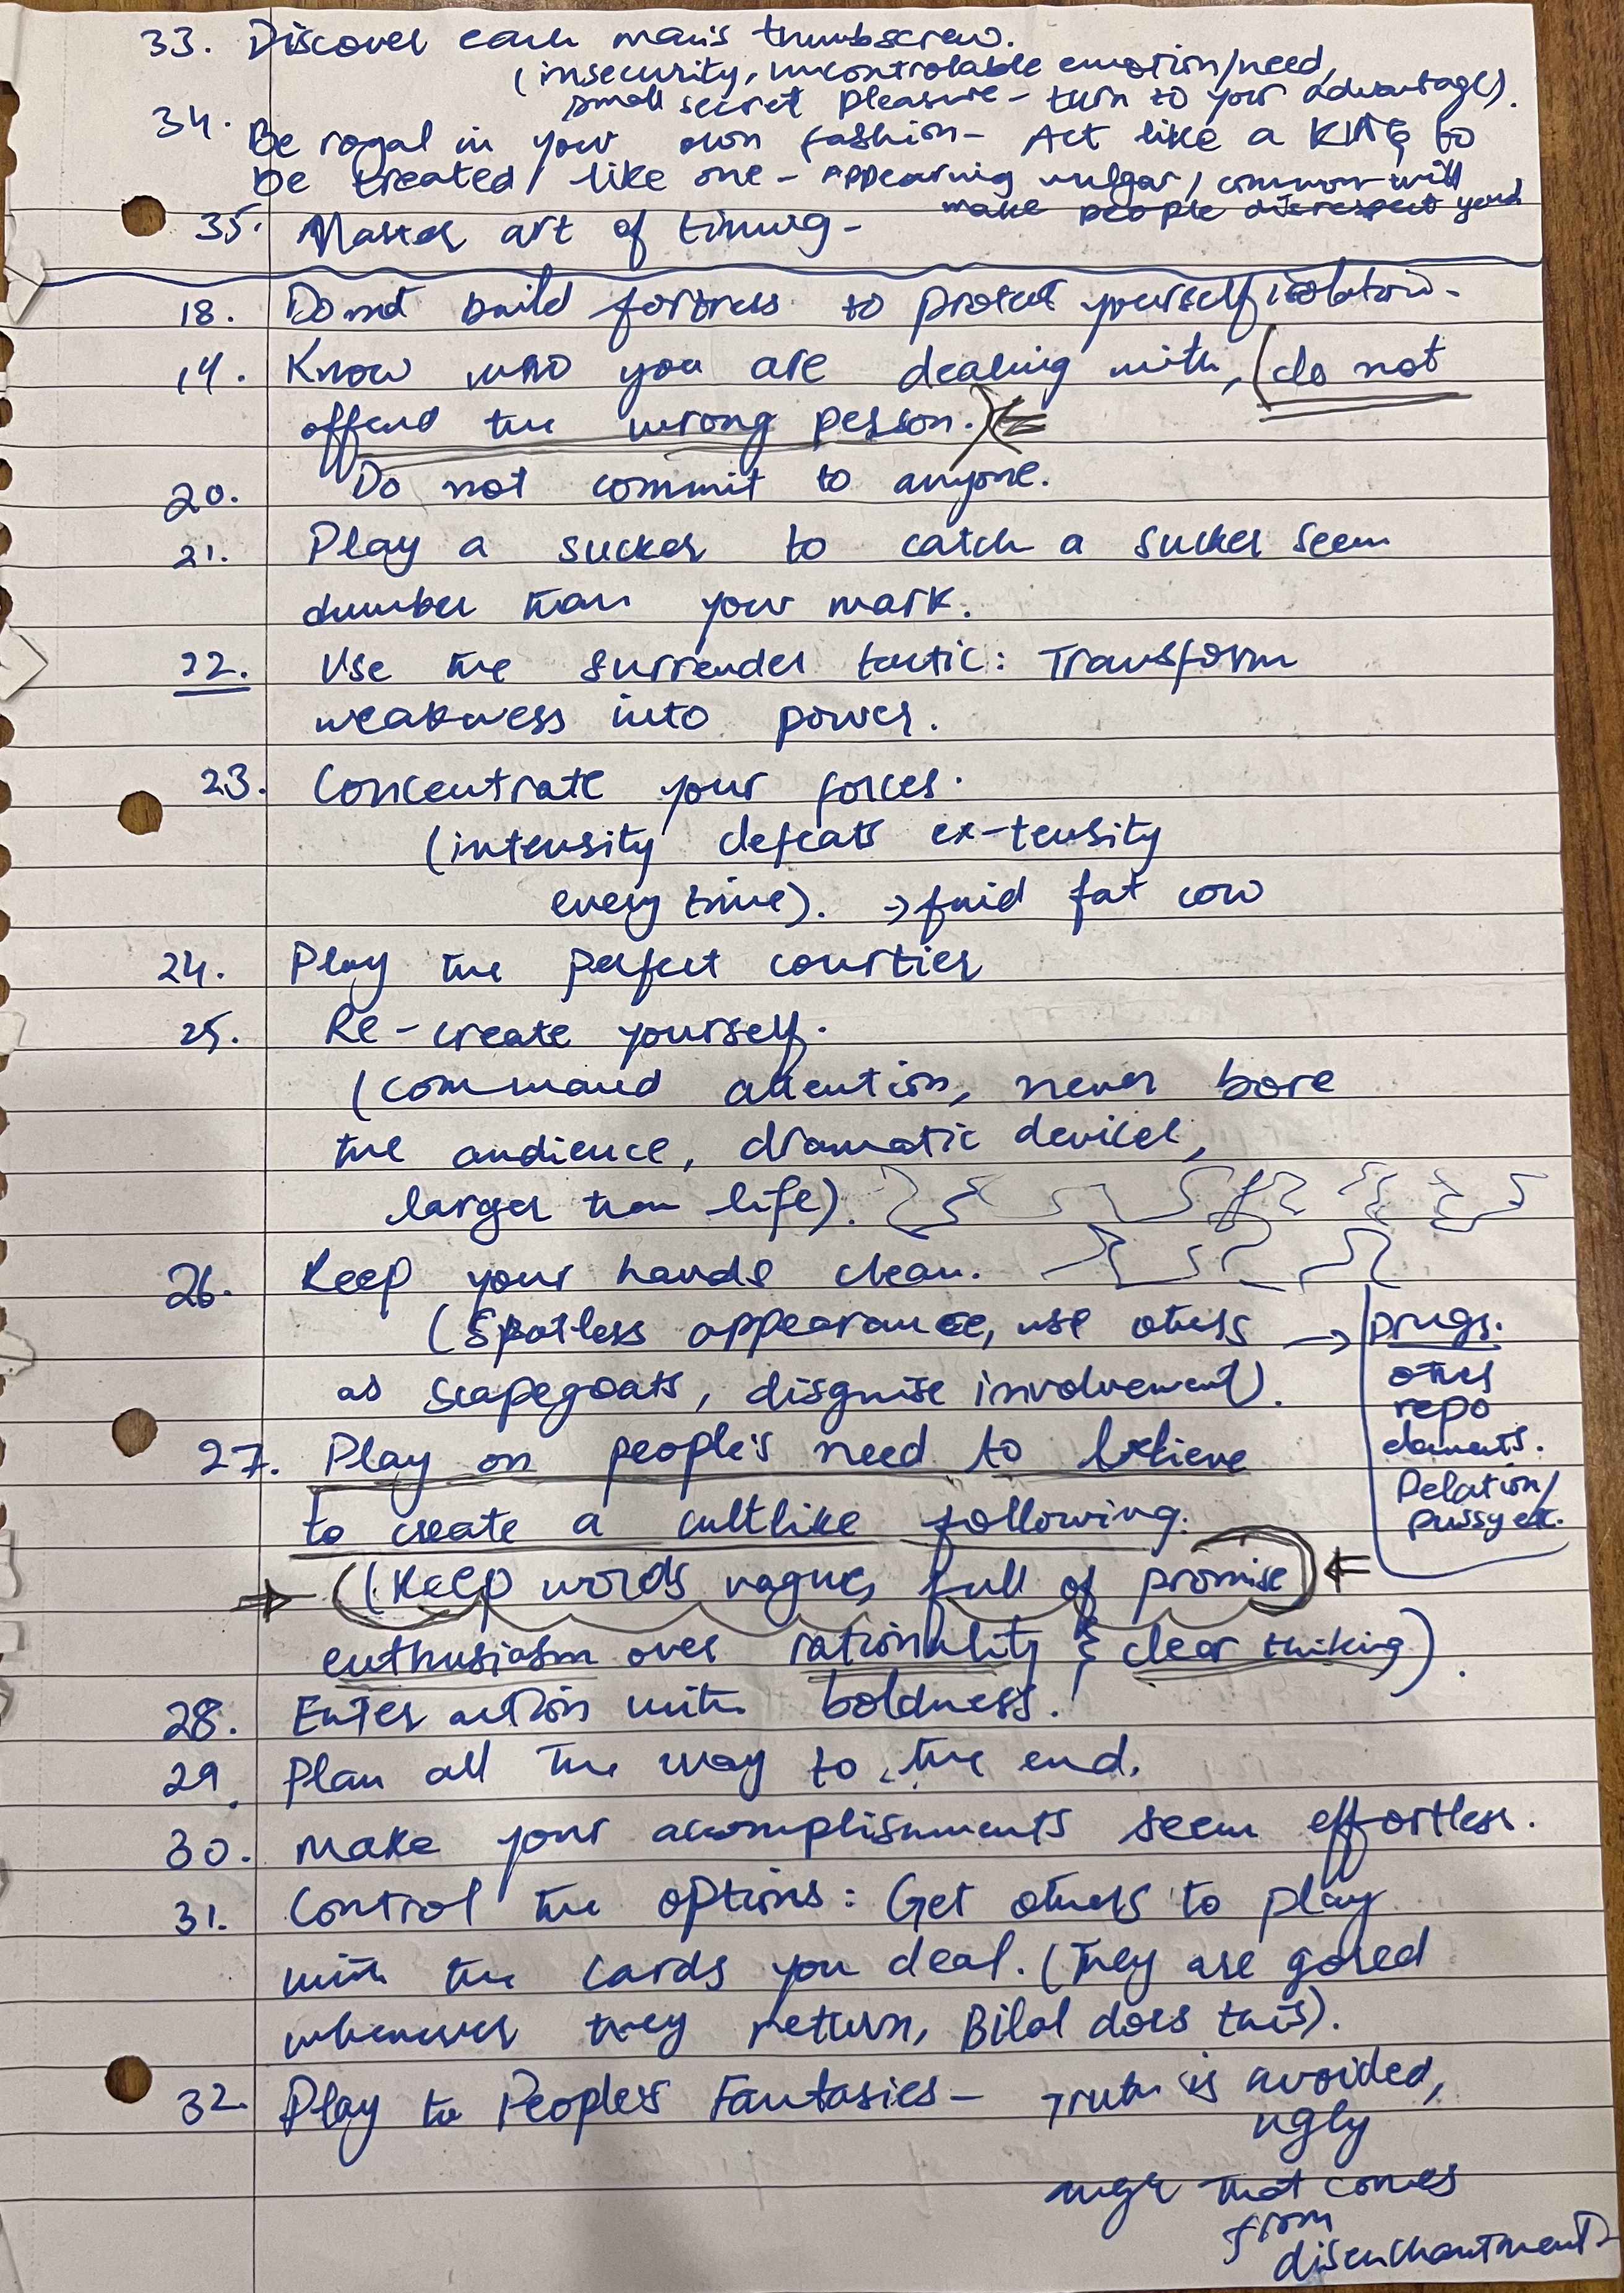 33. Discover each man's thumbscrew.
(insecurity, uncontrolable emotion/need,
small secret pleasure - turn to your advantage).
34. Be royal in your own fashion - Act like a KING to
be treated like one - Appearing vulgar, common will
make people disrespect you
35. Master art of timing -
18. Do not build fortress to protect yourself isolation.
19. Know who you are dealing with, (do not
offend the wrong person.)
20. Do not commit to anyone.
21. Play a sucker to catch a sucker seem
dumber than your mark.
22. Use the surrender tactic: Transform
weakness into power.
23. Concentrate your forces.
(intensity defeats ex-tensity
every time). → find fat cow
24. Play the perfect courtier
25. Re-create yourself.
(command attention, never bore
the audience, dramatic devices,
larger than life).
26. Keep your hands clean.
(Spotless appearance, use others →
as scapegoats, disguise involvement).
drugs.
others
repo
elements.
Relation/
pussy etc.
27. Play on people's need to believe
to create a cultlike following.
(Keep words vague, full of promise
enthusiasm over rationality & clear thinking).
28. Enter action with boldness.
29. Plan all the way to the end.
30. Make your accomplishments seem effortless.
31. Control the options: Get others to play
with the cards you deal. (They are gored
whenever they return, Bilal does this).
32. Play to People's Fantasies - Truth is avoided,
ugly
anger that comes
from
disenchantment